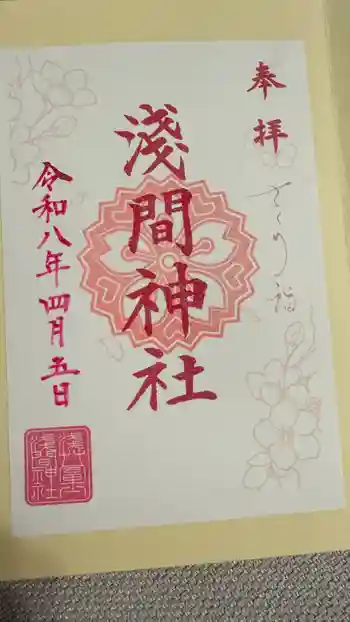 奉拝
さくり詣
淺間神社
令和八年四月五日
淺間神社